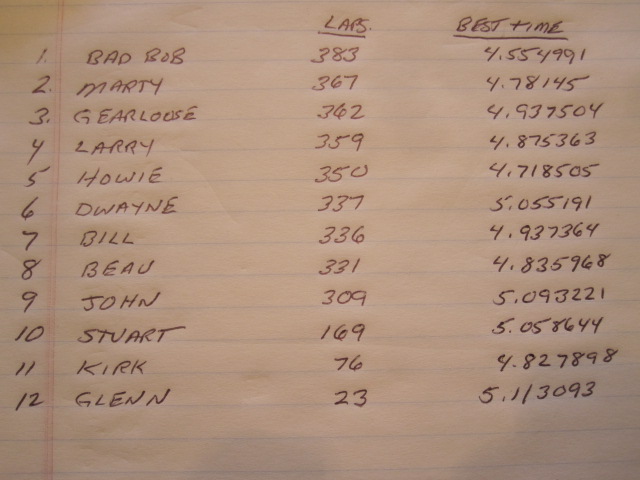 LAPS. BEST TIME
1. BAD BOB 383 4.554991
2. MARTY 367 4.78145
3. GEARLOOSE 362 4.937504
4 LARRY 359 4.875363
5 HOWIE 350 4.718505
6 DWAYNE 337 5.055191
7 BILL 336 4.937364
8 BEAU 331 4.835968
9 JOHN 309 5.093221
10 STUART 169 5.058644
11 KIRK 76 4.827898
12 GLENN 23 5.113093